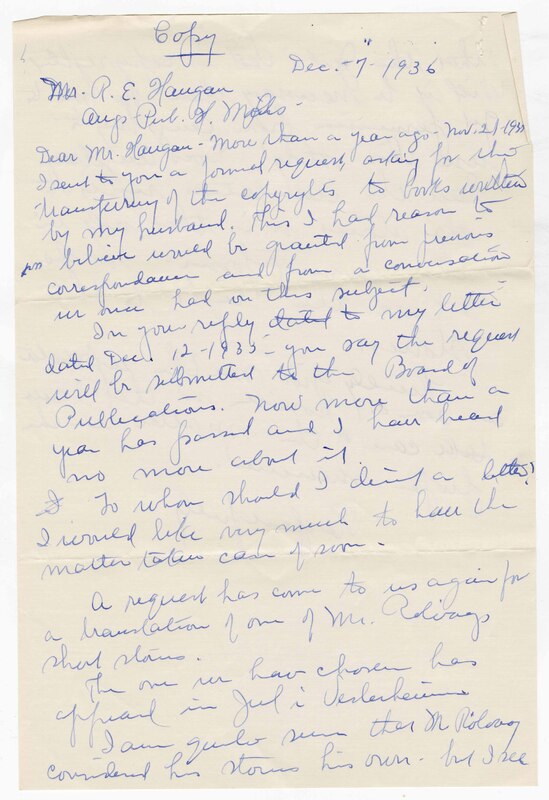 Copy
Dec. -7- 1936
Mr. R. E. Haugan
Augs Pub. H. Mpls-
Dear Mr. Haugan - More than a year ago - Nov. 21-1935
I sent to you a formal request, asking for the
transfering of the copyrights to books written
by my husband. This I had reason to
believe would be granted from previous
correspondance and from a conversation
we once had on this subject.
In your reply dated to my letter
dated Dec. 12-1935- you say the request
will be submitted to the Board of
Publications. Now more than a
year has passed and I have heard
no more about it.
To whom should I direct a letter?
I would like very much to have the
matter taken care of soon -
A request has come to us again for
a translation of one of Mr. Rolvaags
short stories.
The one we have chosen has
appeard in Jul i Vesterheimen
I am quite sure that Mr Rolvaag
considered his stories his own - but I see